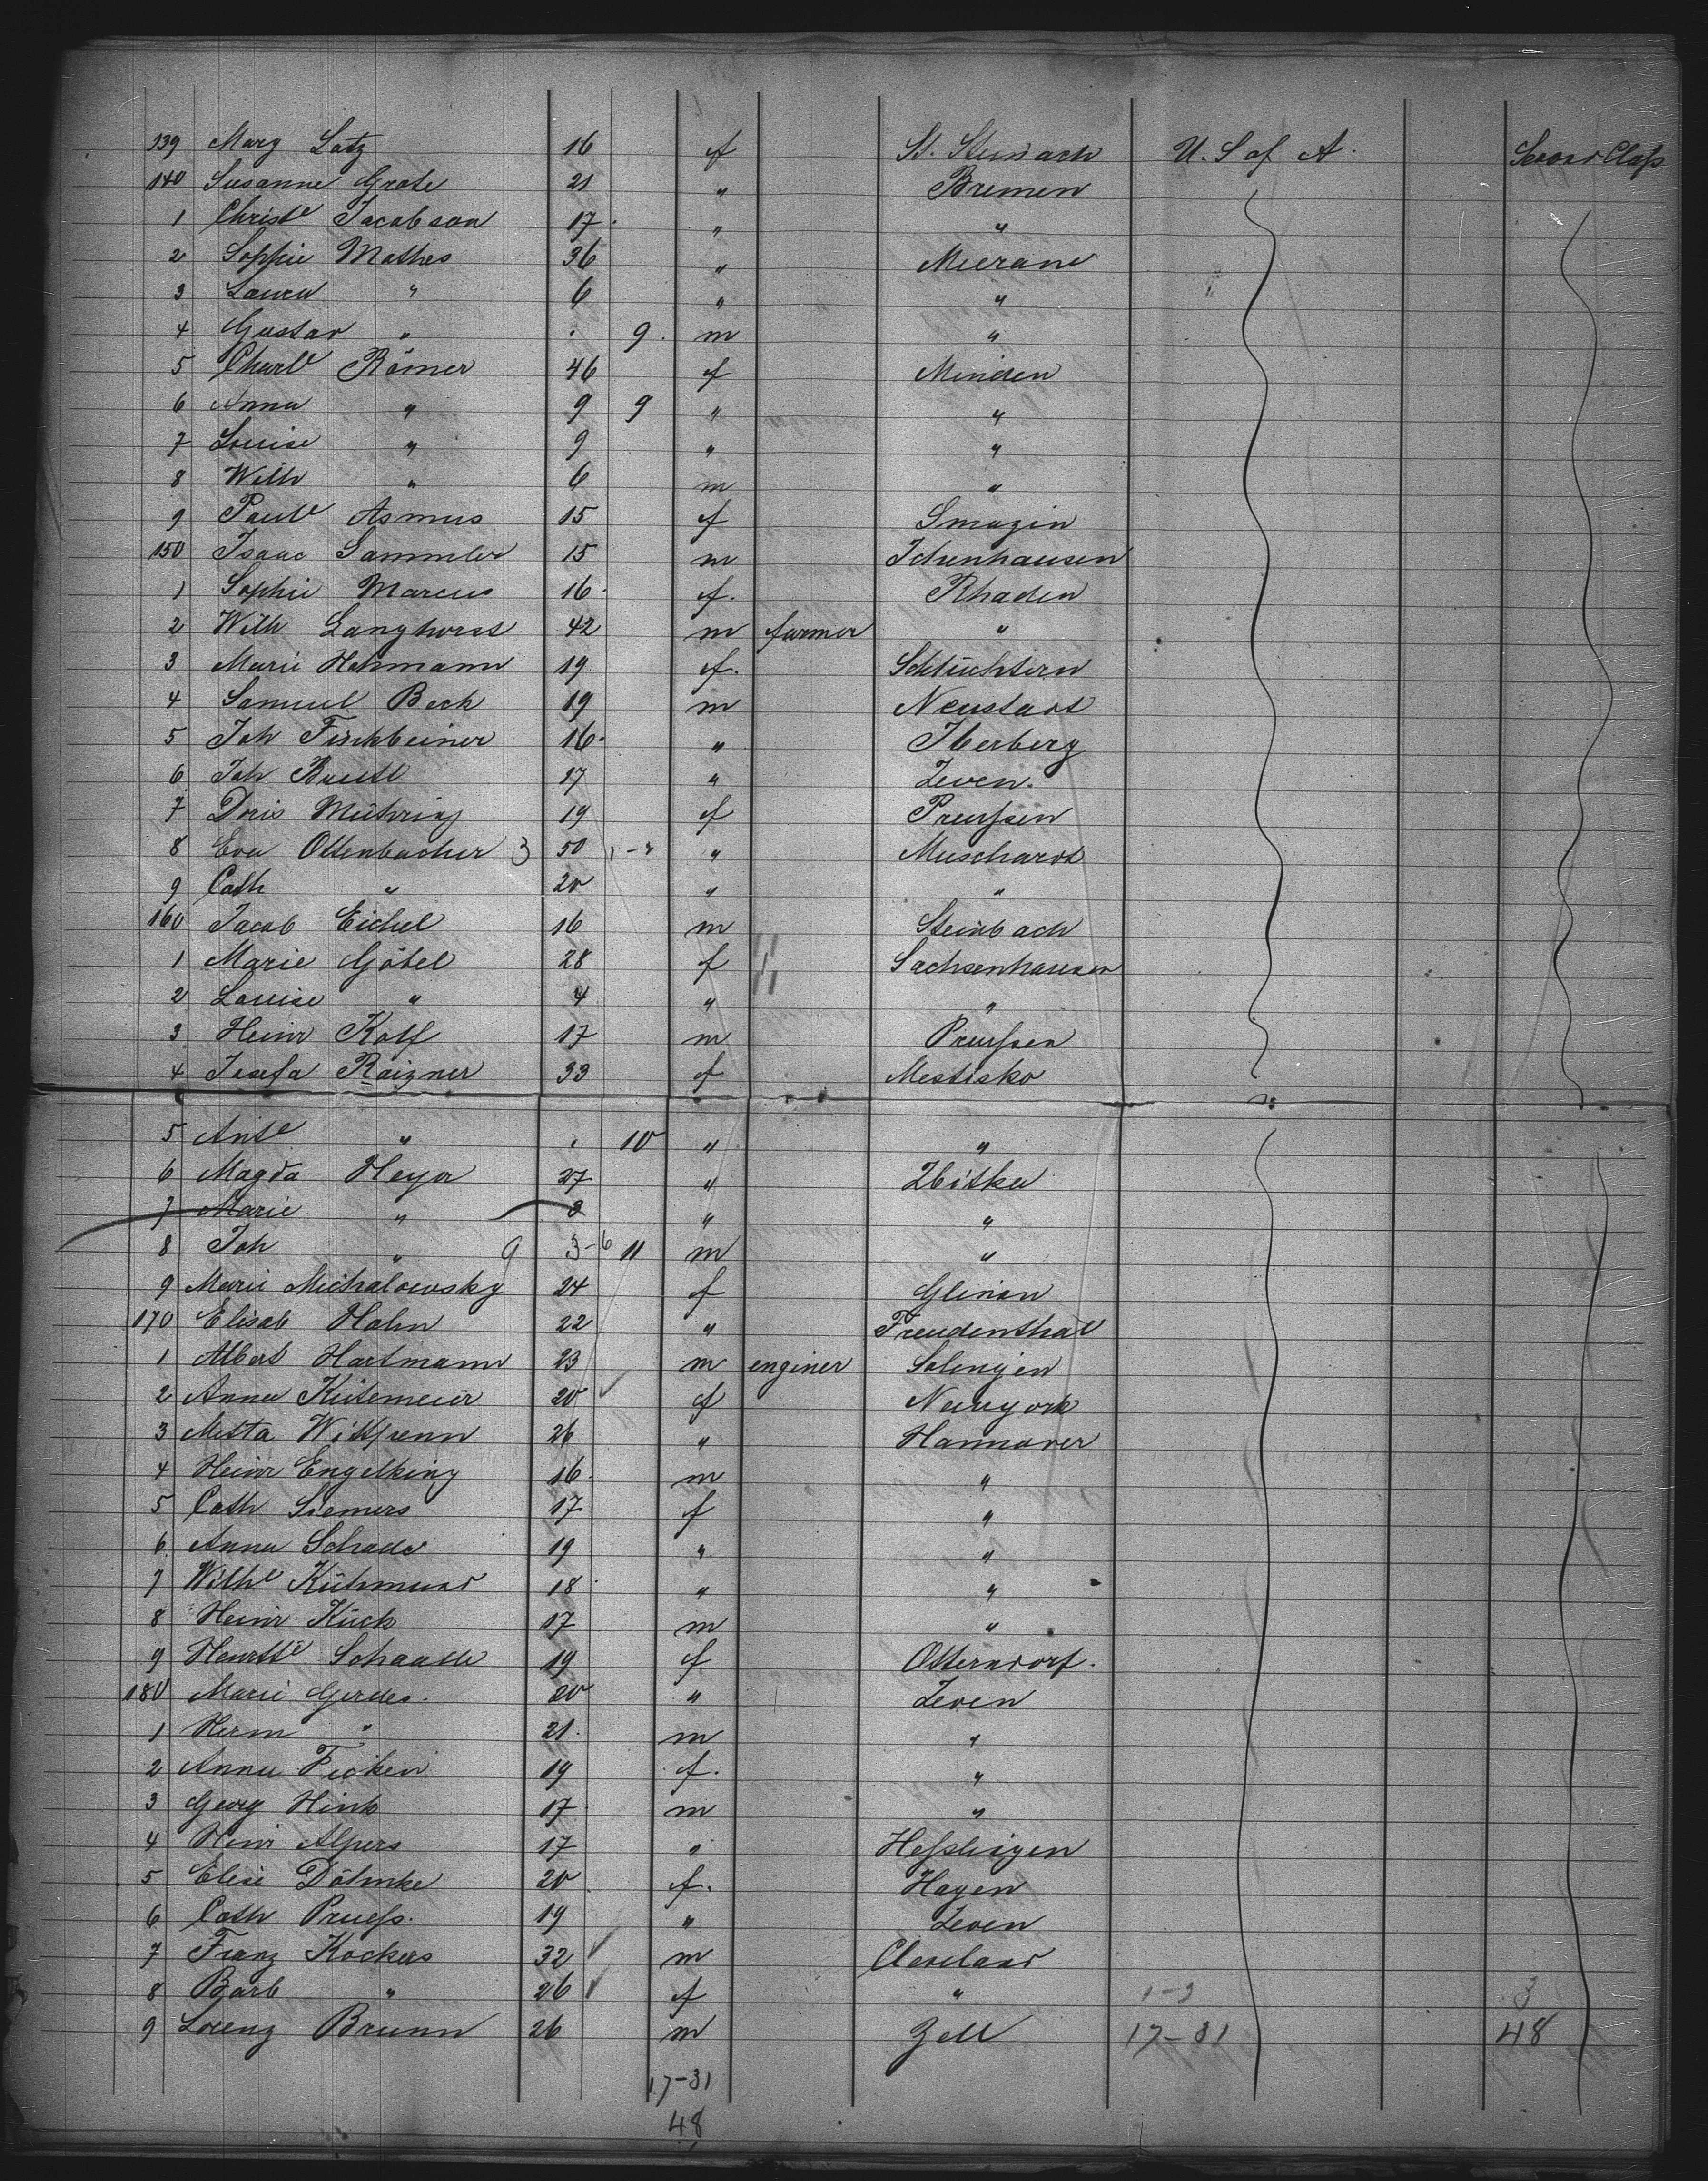 139 Mary Lotz 16 f St. Steinach U. S of A. Second Class
140 Susanne Grote 21 " Bremen
1 Christe Jacobson 17 " "
2 Sophie Mathes 36 " Meerane
3 Laura " 6 " "
4 Gustav " 9 m "
5 Charle Römer 46 f Minden
6 Anna " 9 9 " "
7 Louise " 9 " "
8 Wilh " 6 m "
9 Paule Asmus 15 f Smazin
150 Isaac Sammler 15 m Ichenhausen
1 Sophie Marcus 16 f. Rhaden
2 Wilh Langhorst 42 m farmer "
3 Marie Hohmann 19 f. Schlüchtern
4 Samuel Beck 19 m Neustadt
5 Joh Fischbeiner 16 " Iberberg
6 Joh 17 " Zeven.
7 Doris Mühring 19 f Preussen
8 Eva Ottenbacher 3 50 " Muschardt
9 Cath " 20 " "
160 Jacob Eichel 16 m Steinbach
1 Marie Göbel 28 f Sachsenhausen
2 Louise " 4 " "
3 Heinr Kolf 17 m Preussen
4 Josefa Raizner 33 f Mestisko
5 Ante " 10 " "
6 Magda Heyer 27 " Zbitka
7 Marie " 3 " "
8 Joh " 9 3-6 11 m "
9 Marie Michalowsky 24 f Glinon
170 Elisab Hahn 22 " Freudenthal
1 Albert Hartmann 23 m enginer Solingen
2 Anna Kütemeier 20 f Newyork
3 Metta Wittpenn 26 " Hannover
4 Heinr Engelking 16 m "
5 Cath Siemers 17 f "
6 Anna Schade 19 " "
7 Wilhe Kühmund 18 " "
8 Heinr Kück 17 m "
9 Henrtte Schaade 19 f Otterndorf.
180 Marie Gerdes. 20 " Zeven
1 Herm " 21. m "
2 Anna Ficken 19 f. "
3 Georg Hink 17 m "
4 Heinr Alpers 17 " Hesslingen
5 Elise Döhnke 20 f. Hagen
6 Cath Pruess. 19 " Zeven
7 Franz Kockers 32 m Cleveland
8 Barb " 26 f " 1-3 3
9 Lorenz Brunn 26 m Zell 17-31 48
17-31
48